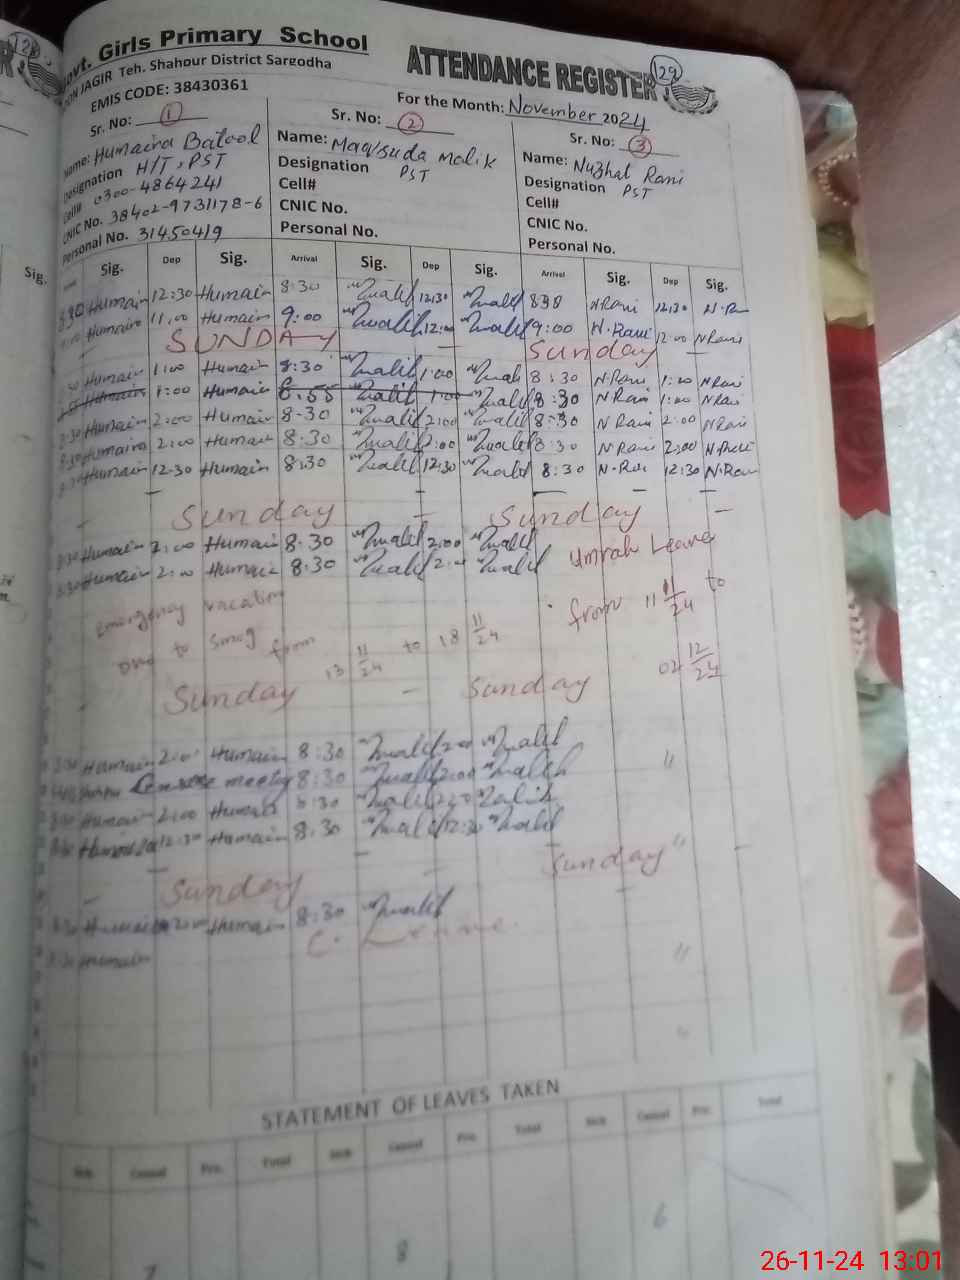 Govt. Girls Primary School
ATTENDANCE REGISTER
129
JAGIR Teh. Shahpur District Sargodha
EMIS CODE: 38430361
For the Month: November 2024
Sr. No: 1
Sr. No: 2
Sr. No: 3
Name: Humaira Batool
Name: Maqsuda Malik
Name: Nuzhat Rani
Designation H/T, PST
Designation PST
Designation PST
Cell# 0300-4864241
Cell#
Cell#
CNIC No. 38402-9731178-6
CNIC No.
CNIC No.
Personal No. 31450419
Personal No.
Personal No.
Sig.
Sig. Dep Sig. Arrival Sig. Dep Sig. Arrival Sig. Dep Sig.
Humain 12:30 Humain 8:30 Malik 12:30 Malik 8:30 N.Rani 12:30
Humaira 11:00 Humain 9:00 Malik 12:00 Malik 9:00 N.Rani 12:00 N Rani
SUNDAY Sunday
Humain 1:00 Humain 8:30 Malik 1:00 Malik 8:30 N Rani 1:00 N Rani
Humain 1:00 Humain 8:55 Malik 1:00 Malik 8:30 N Rani 1:00 N Rani
8:30 Humain 2:00 Humain 8:30 Malik 2:00 Malik 8:30 N Rani 2:00 N Rani
8:30 Humaira 2:00 Humain 8:30 Malik 2:00 Malik 8:30 N Rani 2:00
Humain 12:30 Humain 8:30 Malik 12:30 Malik 8:30 N.Rani 12:30 N.Rani
Sunday Sunday
8:30 Humain 2:00 Humain 8:30 Malik 2:00 Malik Umrah Leave
8:30 Humain 2:00 Humain 8:30 Malik 2:00 Malik
from 11 11/24 to
emergency vacation
due to smog from 13 11/24 to 18 11/24
02 12/24
Sunday Sunday
8:30 Humain 2:00 Humain 8:30 Malik 2:00 Malik
meeting 8:30 Malik 2:00 Malik "
Humain 2:00 Humain 8:30 Malik 2:00 Malik
8:30 12:30 Humain 8:30 Malik 12:30 Malik
Sunday Sunday "
8:30 Humain 2:00 Humain 8:30 Malik
C. Leave
8:30 Humain "
STATEMENT OF LEAVES TAKEN
Sick Casual Pre. Total Sick Casual Pre. Total Sick Casual Pre. Total
6
8
7
26-11-24 13:01